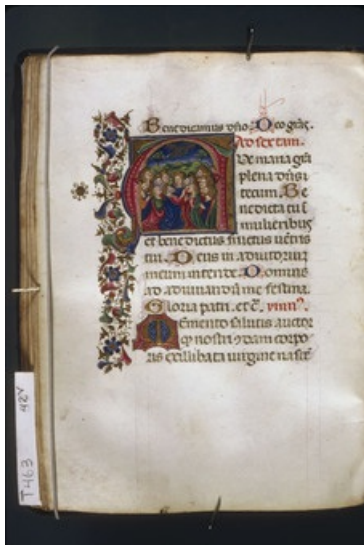 Benedicamus dño. Deo grãs.
Ad sextam.
Ve maria grã
plena dñs
tecum. Be
nedicta tu ĩ
mulieribus
et benedictus fructus uentris
tui. Deus in adiutorium
meum intende. Domine
ad adiuuandũ me festina.
Gloria patri. et c̃. ymnº.
Memento salutis auctor
qp nostri qdam corpo
ris ex illibata uirgine nascẽ
T463 42v